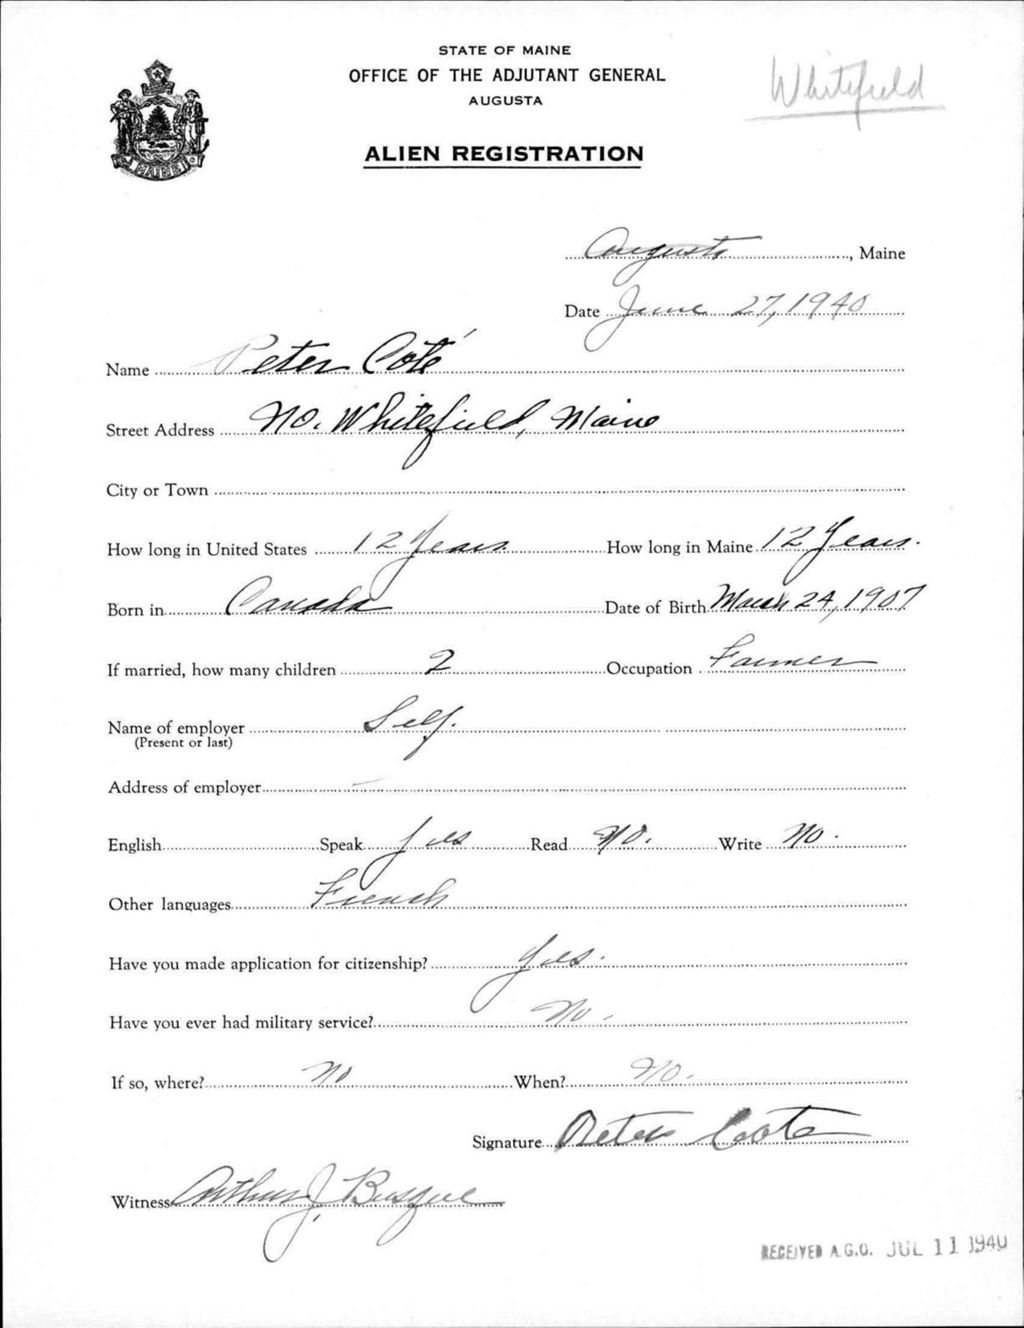 STATE OF MAINE
OFFICE OF THE ADJUTANT GENERAL
AUGUSTA
Whitefield
ALIEN REGISTRATION
MAINE
Augusta, Maine
Date June 27, 1940
Name Peter Coté
Street Address No. Whitefield, Maine
City or Town
How long in United States 12 Years How long in Maine 12 Years.
Born in Canada Date of Birth March 24, 1907
If married, how many children 2 Occupation Farmer
Name of employer Self.
(Present or last)
Address of employer —
English Speak Yes Read No. Write No.
Other languages French
Have you made application for citizenship? Yes.
Have you ever had military service? No.
If so, where? No When? No.
Signature Peter Coote
Witness Arthur J. Busque
RECEIVED A.G.O. JUL 11 1940